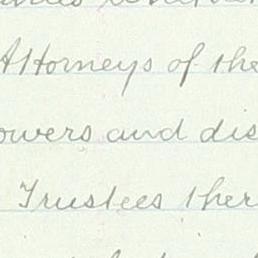 Attorneys of the
owers and dis
Trustees ther